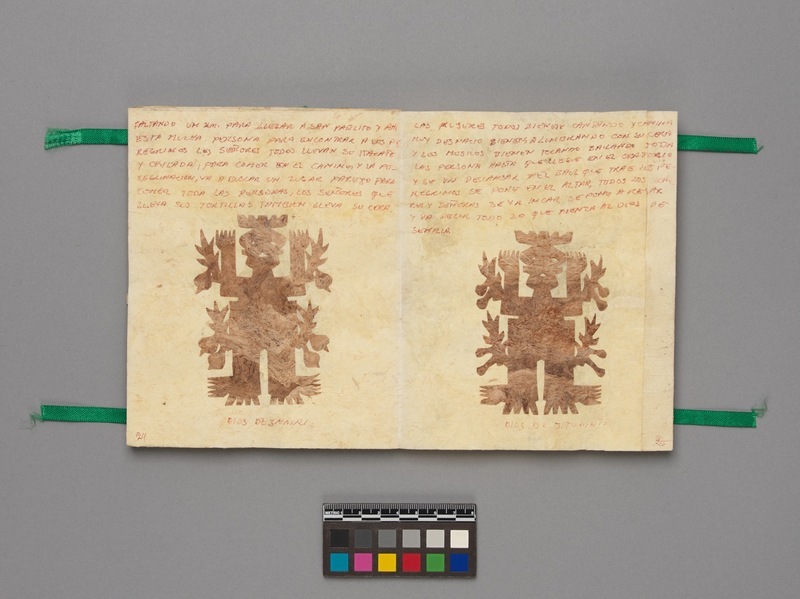 FALTANDO UN KM. PARA LLEGAR A SAN PABLITO Y AHI
ESTA MUCHA PERSONA PARA ENCONTRAR A LOS PE
REGRINOS LOS SEÑORES TODOS LLEVAN SU ITACATE
Y PARA COMER EN EL CAMINO Y LA
VA A BUSCAR UN LUGAR PAREJO PARA
COMER TODA LAS PERSONAS, LOS SEÑORES QUE
LLEVA SUS TORTILLAS TAMBIEN LLEVA SU CERA,
DIOS DE
24
LAS MUJERES TODOS BIENEN CANTANDO Y CAMINA
MUY DESPACIO BIENEN ALUMBRANDO CON SU CERA
Y LOS MUSICOS BIENEN TOCANDO BAILANDO TODA
LAS PERSONA HASTA QUE LLEGUE EN EL ORATORIO
Y SE VA DESCANSAR DEL BAUL QUE TRAE LOS PE
REGRINOS SE PONE EN EL ALTAR, TODOS LOS SEÑO
RES Y SEÑORAS SE VA INCAR SE PONE A RESAR
Y VA DECIR TODO LO QUE SIENTA AL DIOS DE
SEMILLA
DIOS DE
25